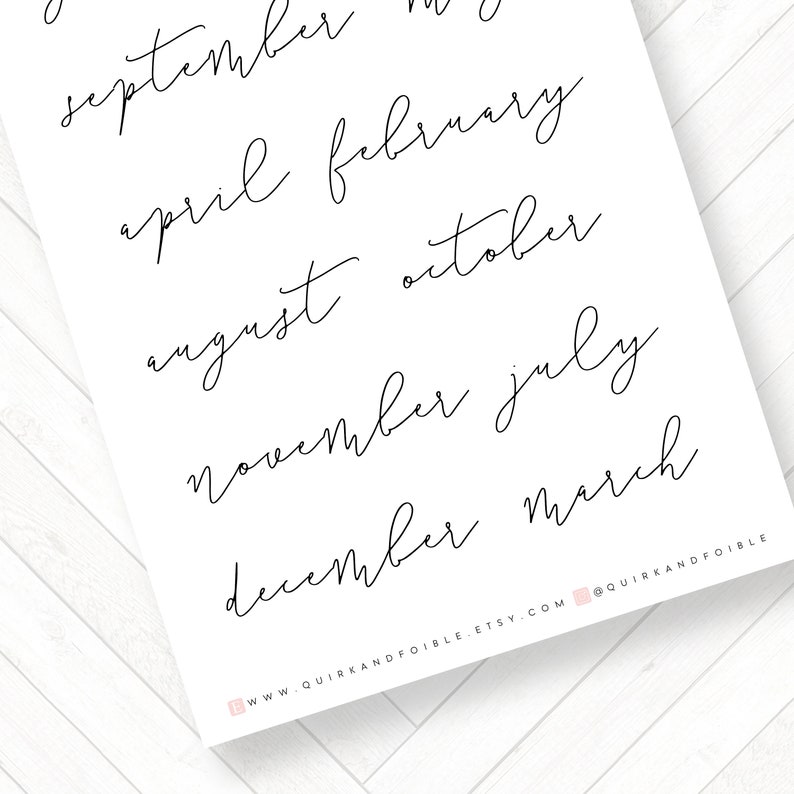 september may
april february
august october
november july
december march
E WWW.QUIRKANDFOIBLE.ETSY.COM @QUIRKANDFOIBLE